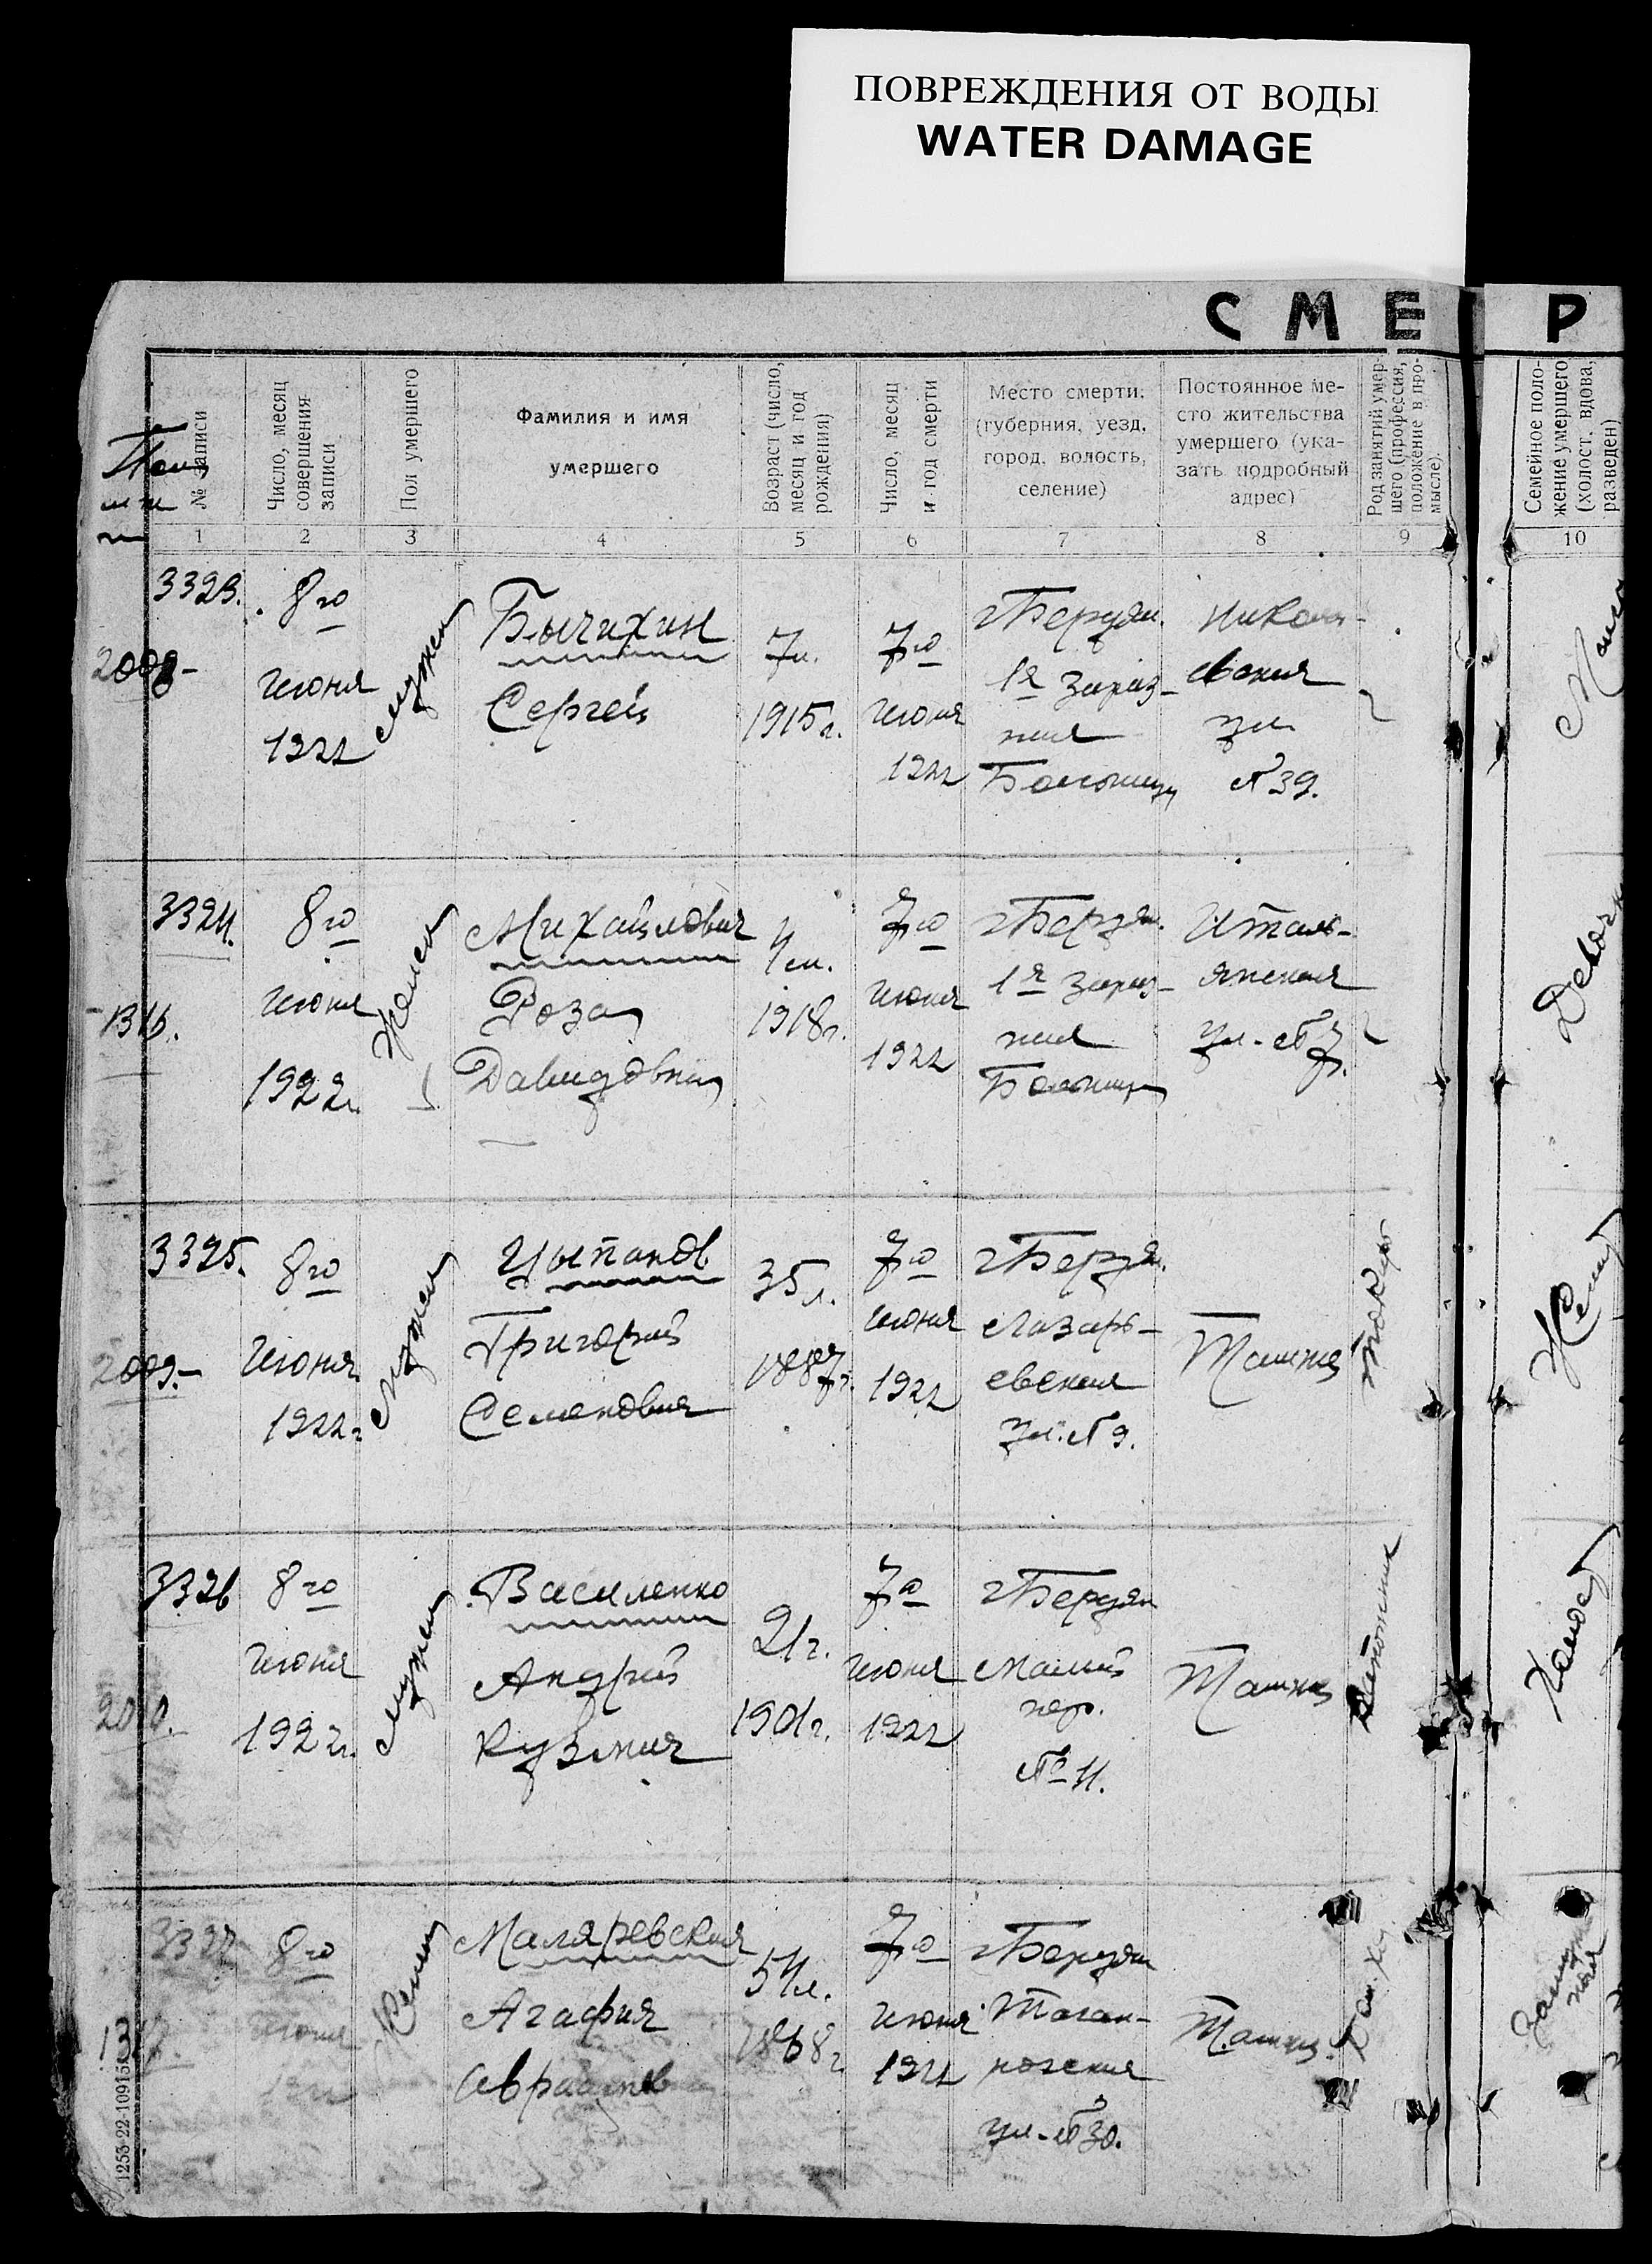 ПОВРЕЖДЕНИЯ ОТ ВОДЫ
WATER DAMAGE
СМЕР
№ записи
Число, месяц
совершения
записи
Пол умершего
Фамилия и имя
умершего
Возраст (число,
месяц и год
рождения)
Число, месяц
и год смерти
Место смерти.
(губерния, уезд,
город, волость,
селение)
Постоянное ме-
сто жительства
умершего (ука-
зать подробный
адрес)
Род занятий умер-
шего (профессия,
положение в про-
мысле).
Семейное поло-
жение умершего
(холост, вдова,
разведен)
1 2 3 4 5 6 7 8 9 10
3323.
2008-
8го
Июня
1922
мужск
Бычихин
Сергей
7л.
1915г.
7го
Июня
1922
г Бердян.
1я Зараз-
ная
Больница
Никола-
евская
ул
№ 39.
3324.
1316.
8го
Июня
1922г.
Женск
Михайлович
Роза
Давидовна
4л.
1918г.
7го
Июня
1922
г Бердян.
1я Зараз-
ная
Больница
Италь-
янская
ул. № 7.
Девочка
3325.
2009.-
8го
Июня
1922г
мужск
Цыпанов
Григорий
Семенович
35л.
1887г.
7го
июня
1922
г Бердян.
Лазарь-
евская
ул. № 9.
Там же
Токарь
Женат
3326
2010.
8го
Июня
1922г.
мужск
Василенко
Андрей
Кузьмич
21г.
1901г.
7го
июня
1922
г Бердян
Малый
пер.
№ 11.
Там же
Холост
3327
1317.
8го
Июня
1922
Женск
Маляревская
Агафия
Авраамовна
54л.
1868г
7го
Июня
1922
г Бердян
Таган-
рогская
ул. № 30.
Там же.
Дом. Хоз
Замуж
няя
1253-22-10915